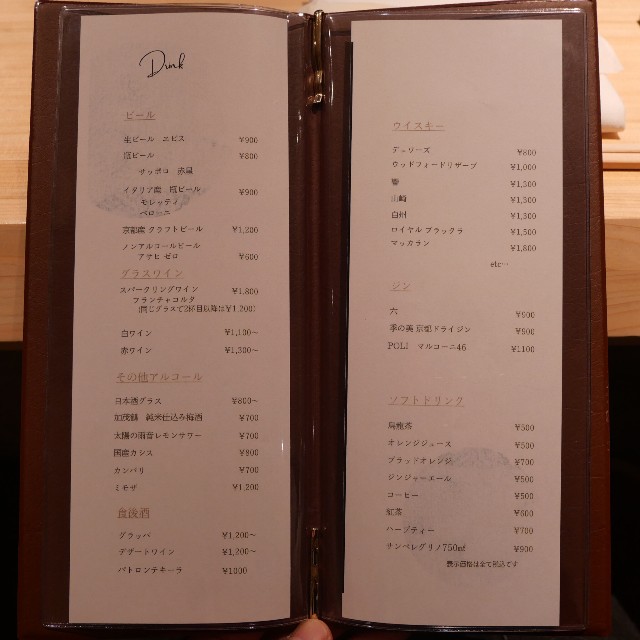 Drink
ビール
生ビール エビス ¥900
瓶ビール ¥800
サッポロ 赤星
イタリア産 瓶ビール ¥900
モレッティ
ペローニ
京都産 クラフトビール ¥1,200
ノンアルコールビール
アサヒ ゼロ ¥600
グラスワイン
スパークリングワイン ¥1,800
フランチャコルタ
(同じグラスで2杯目以降は¥1,200)
白ワイン ¥1,100~
赤ワイン ¥1,300~
その他アルコール
日本酒グラス ¥800~
加茂鶴 純米仕込み梅酒 ¥700
太陽の雨音レモンサワー ¥700
国産カシス ¥800
カンパリ ¥700
ミモザ ¥1,200
食後酒
グラッパ ¥1,200~
デザートワイン ¥1,200~
パトロンテキーラ ¥1000
ウイスキー
デュワーズ ¥800
ウッドフォードリザーブ ¥1,000
響 ¥1,300
山崎 ¥1,300
白州 ¥1,300
ロイヤル ブラックラ ¥1,500
マッカラン ¥1,800
etc…
ジン
六 ¥900
季の美 京都ドライジン ¥900
POLI マルコーニ46 ¥1100
ソフトドリンク
烏龍茶 ¥500
オレンジジュース ¥500
ブラッドオレンジ ¥700
ジンジャーエール ¥500
コーヒー ¥500
紅茶 ¥600
ハーブティー ¥700
サンペレグリノ750㎖ ¥900
表示価格は全て税込です